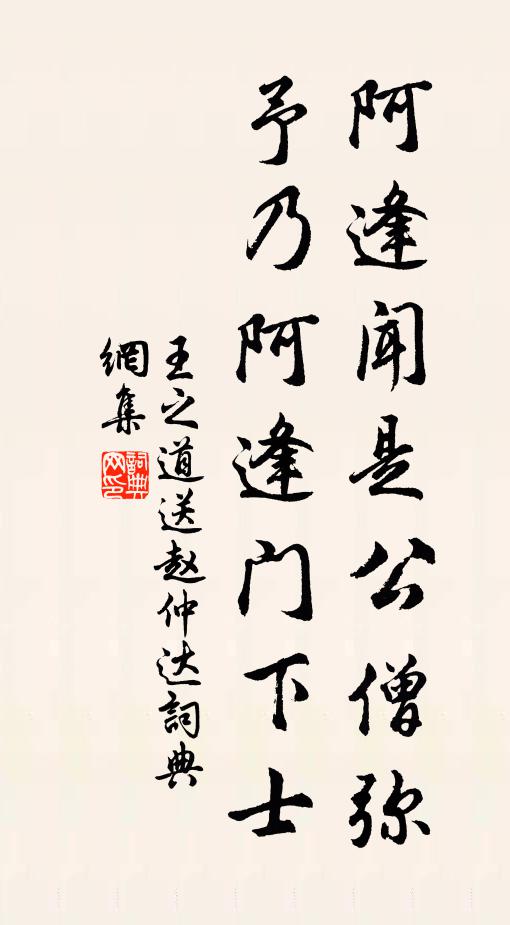 阿逢闻是公僧弥
予乃阿逢门下士
王之道送赵仲达詞典
網集
詞典
网印